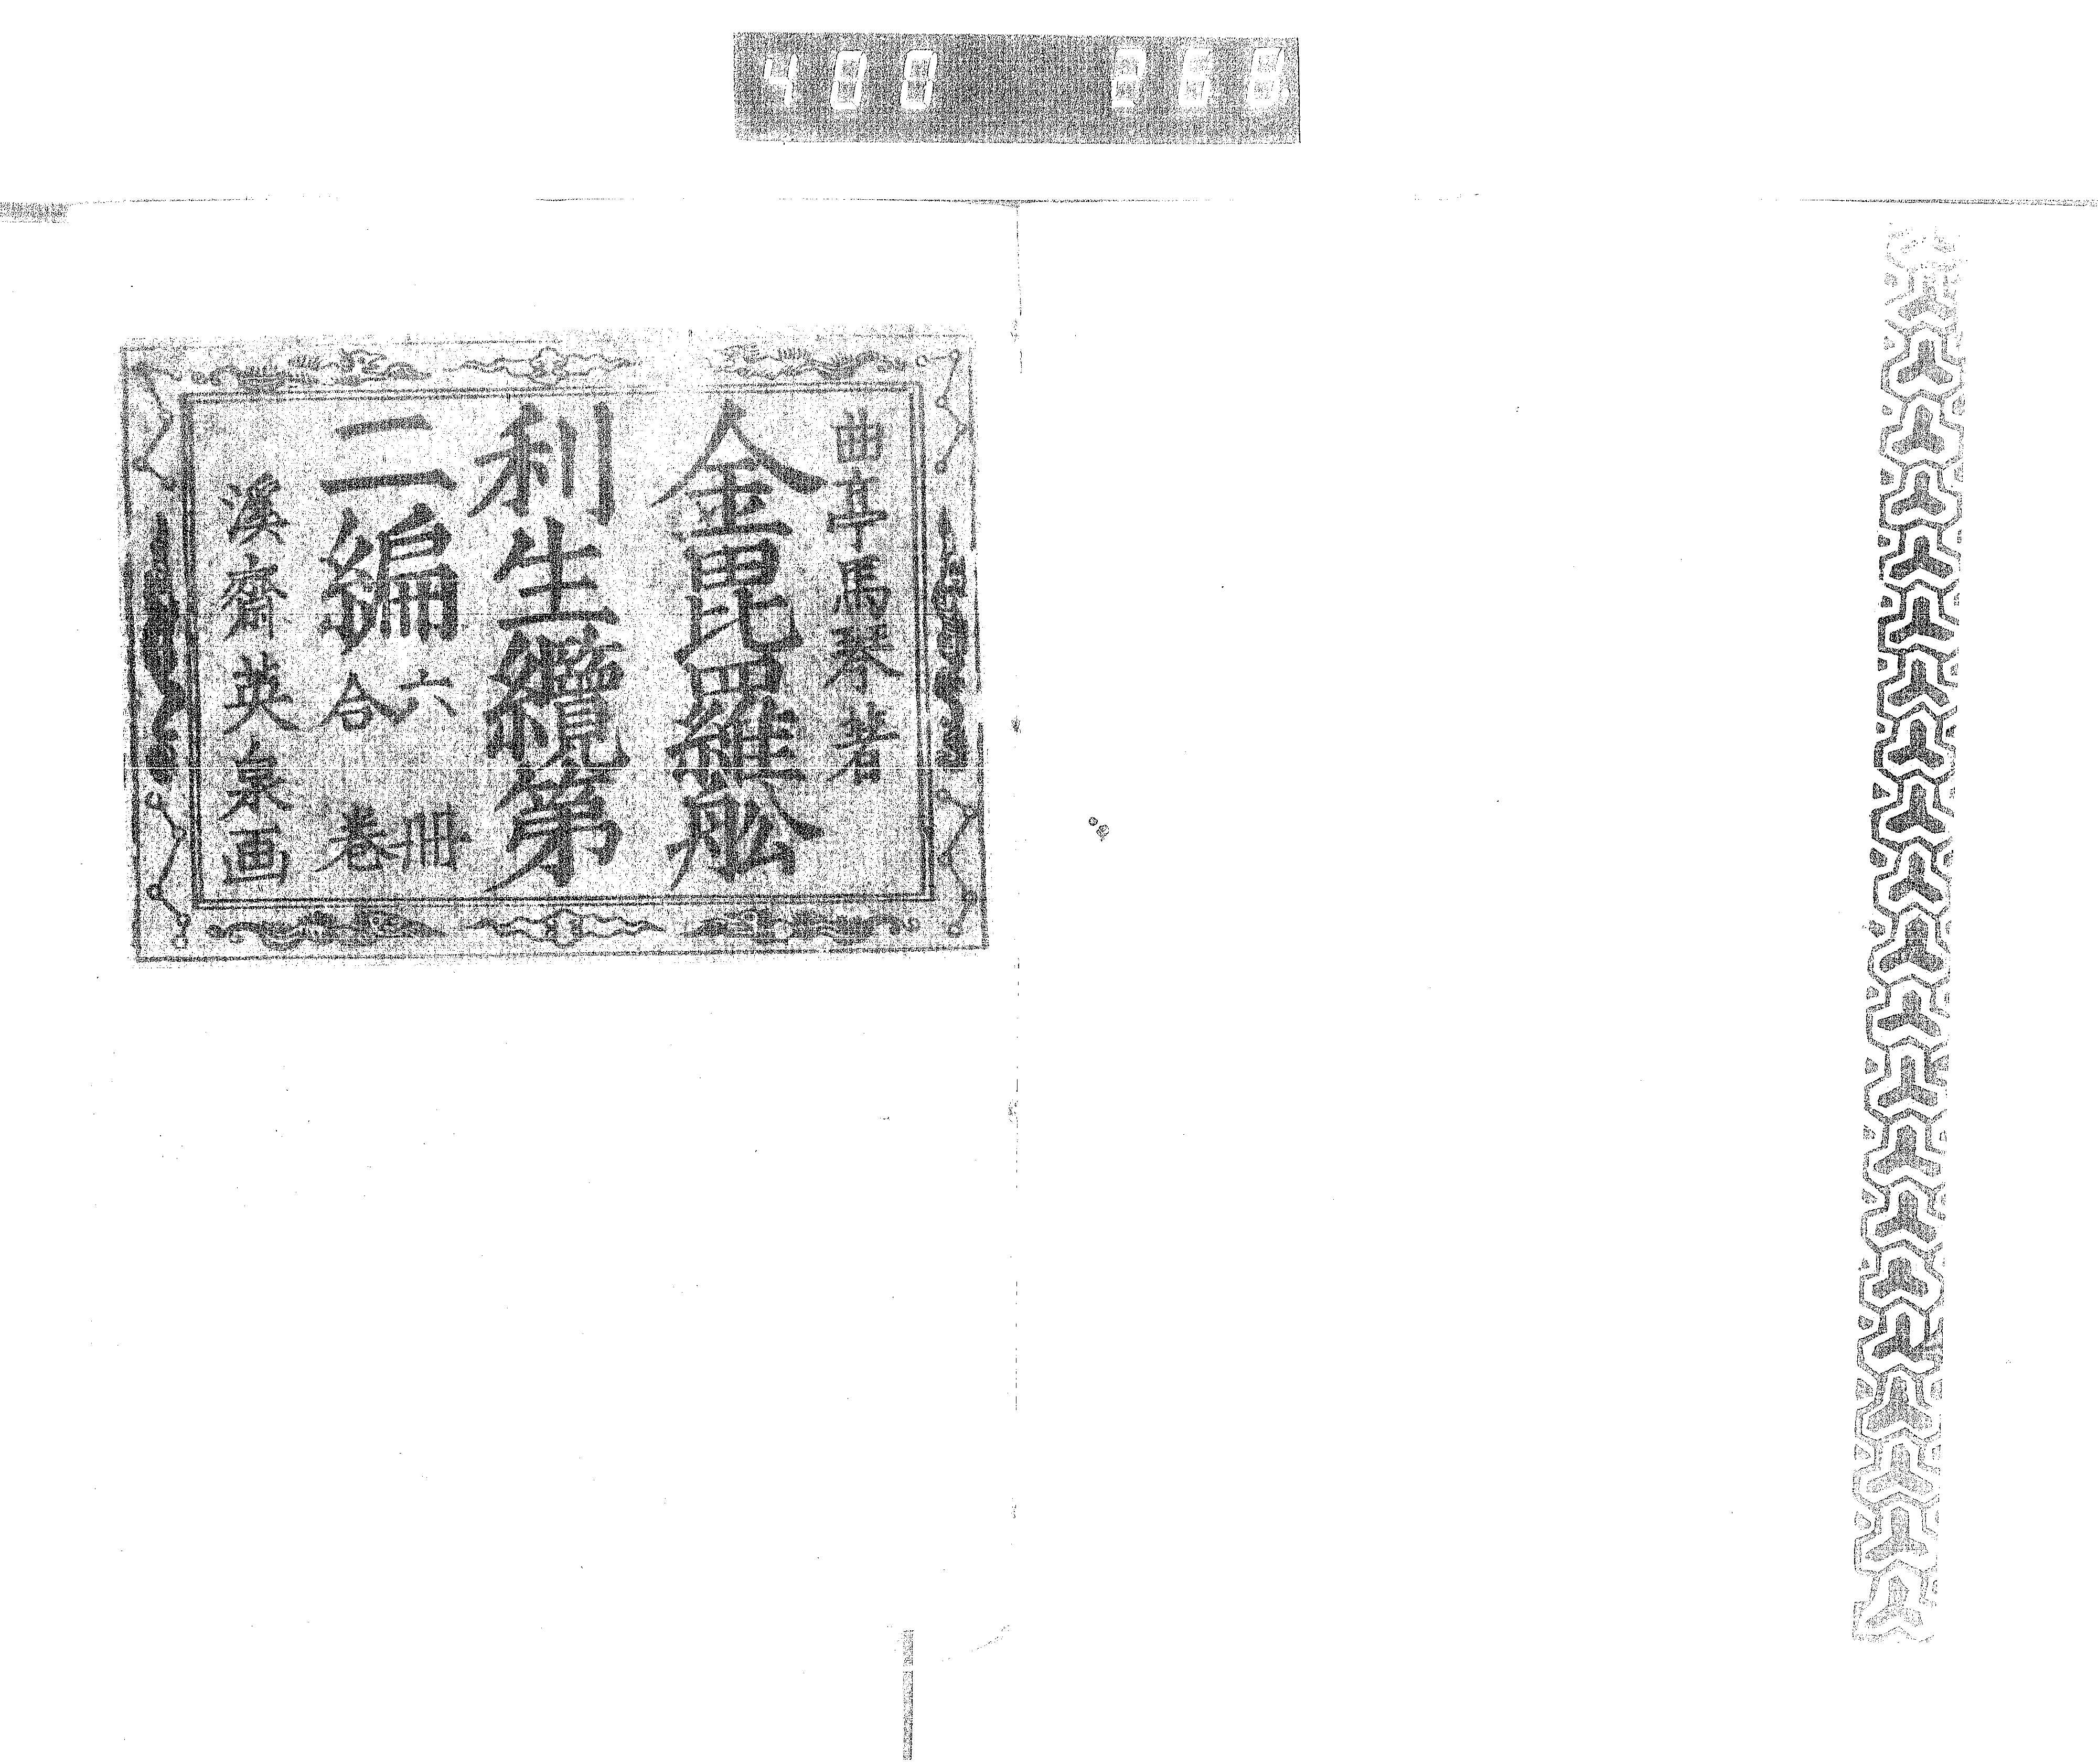 曲亭馬琴著
金毘羅舩
利生纜第
二編
六冊
合巻
溪齋英泉画